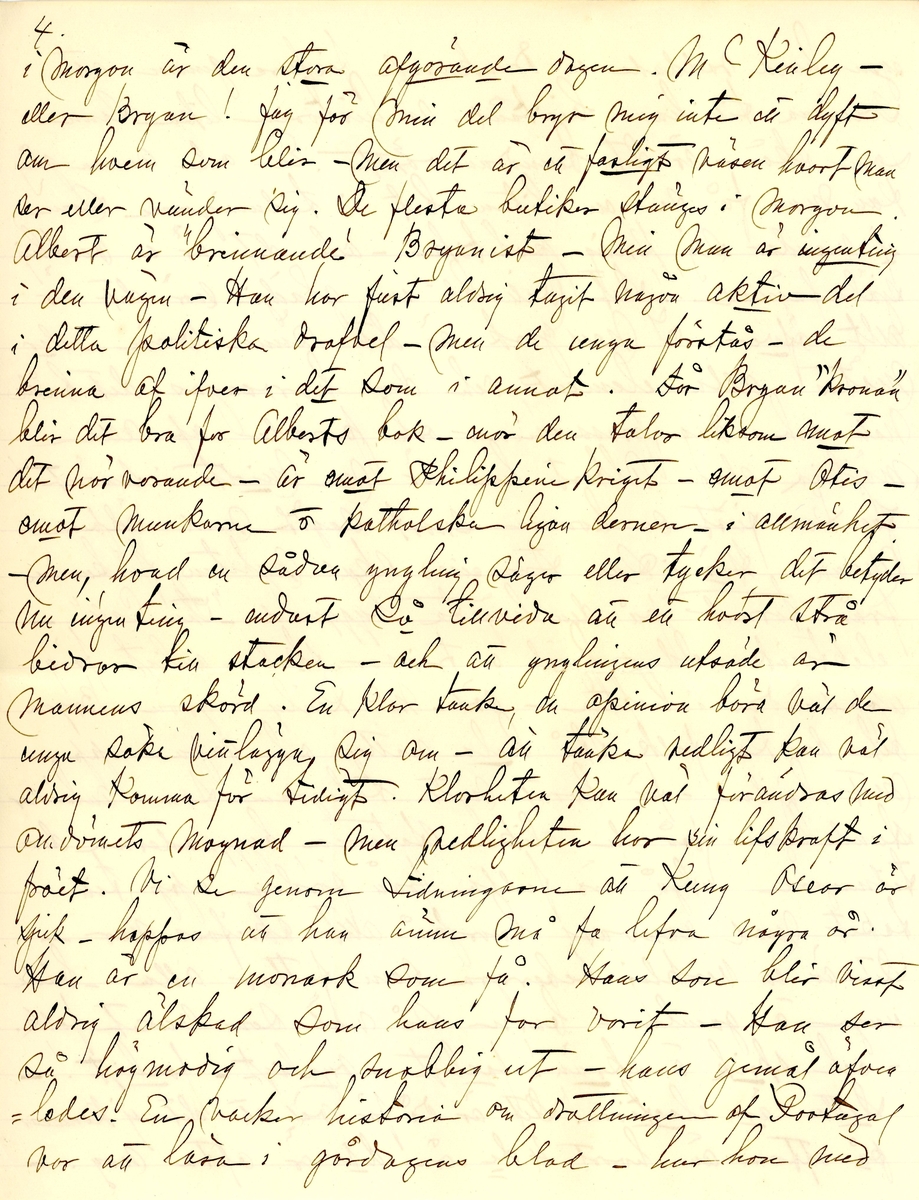 4.
i morgon är den stora afgörande dagen. McKinley –
eller Bryan! Jag för min del bryr mig inte ett dyft
om hvem som blir – men det är ett farligt väsen hvart man
ser eller vänder sig. De flesta butiker stänges i morgon.
Albert är "brinnande" Bryanist – Min man är ingenting
i den vägen – Han har just aldrig tagit någon aktiv del
i detta politiska drafvel – men de unga förstås – de
brinna af ifver i det som i annat. Får Bryan "kronan"
blir det bra för Alberts bok – när den talar liksom emot
det närvarande – är emot Philippine kriget – emot Otis –
emot munkarne o katholska ligan dernere – i allmänhet.
– men, hvad en sådan yngling säger eller tycker det betyder
nu ingenting – endast så tillvida att ett hvart strå
bidrar till stacken – och att ynglingens utsäde är
mannens skörd. En klar tanke, en opinion böra väl de
unga söka vinlägga sig om – att tänka redligt kan väl
aldrig komma för tidigt. Klarheten kan väl förändras med
omdömets mognad – men redligheten har sin lifskraft i
fröet. Vi se genom tidningarne att Kung Oscar är
sjuk – hoppas att han ännu må få lefva några år.
Han är en monark som få. Hans son blir visst
aldrig älskad som hans far varit – Han ser
så högmodig och snobbig ut – hans gemål äfven
=ledes. En vacker historia om drottningen af Portugal
var att läsa i gårdagens blad – hur hon med